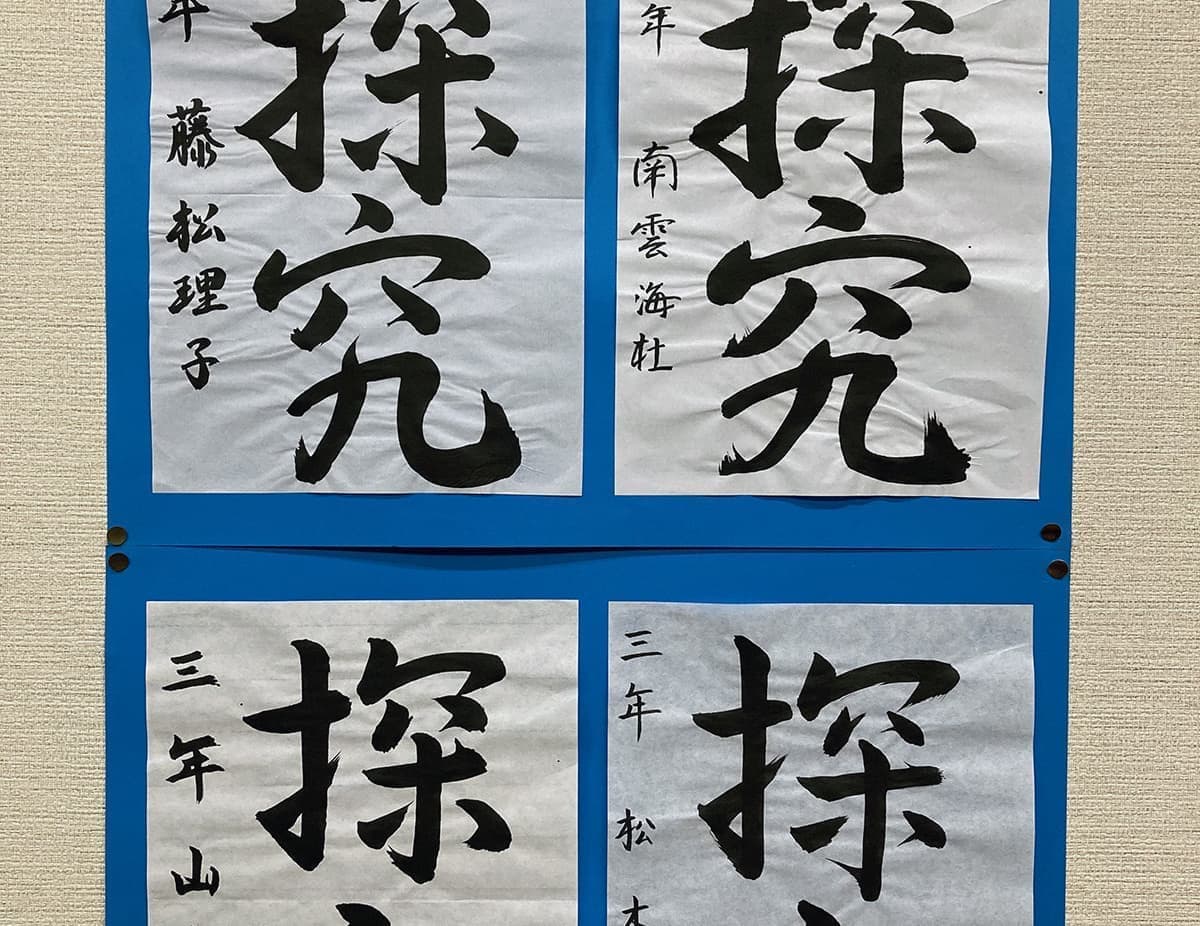 探究
年 南雲海杜
探究
年 藤松理子
探
三年 松本
探
三年 山